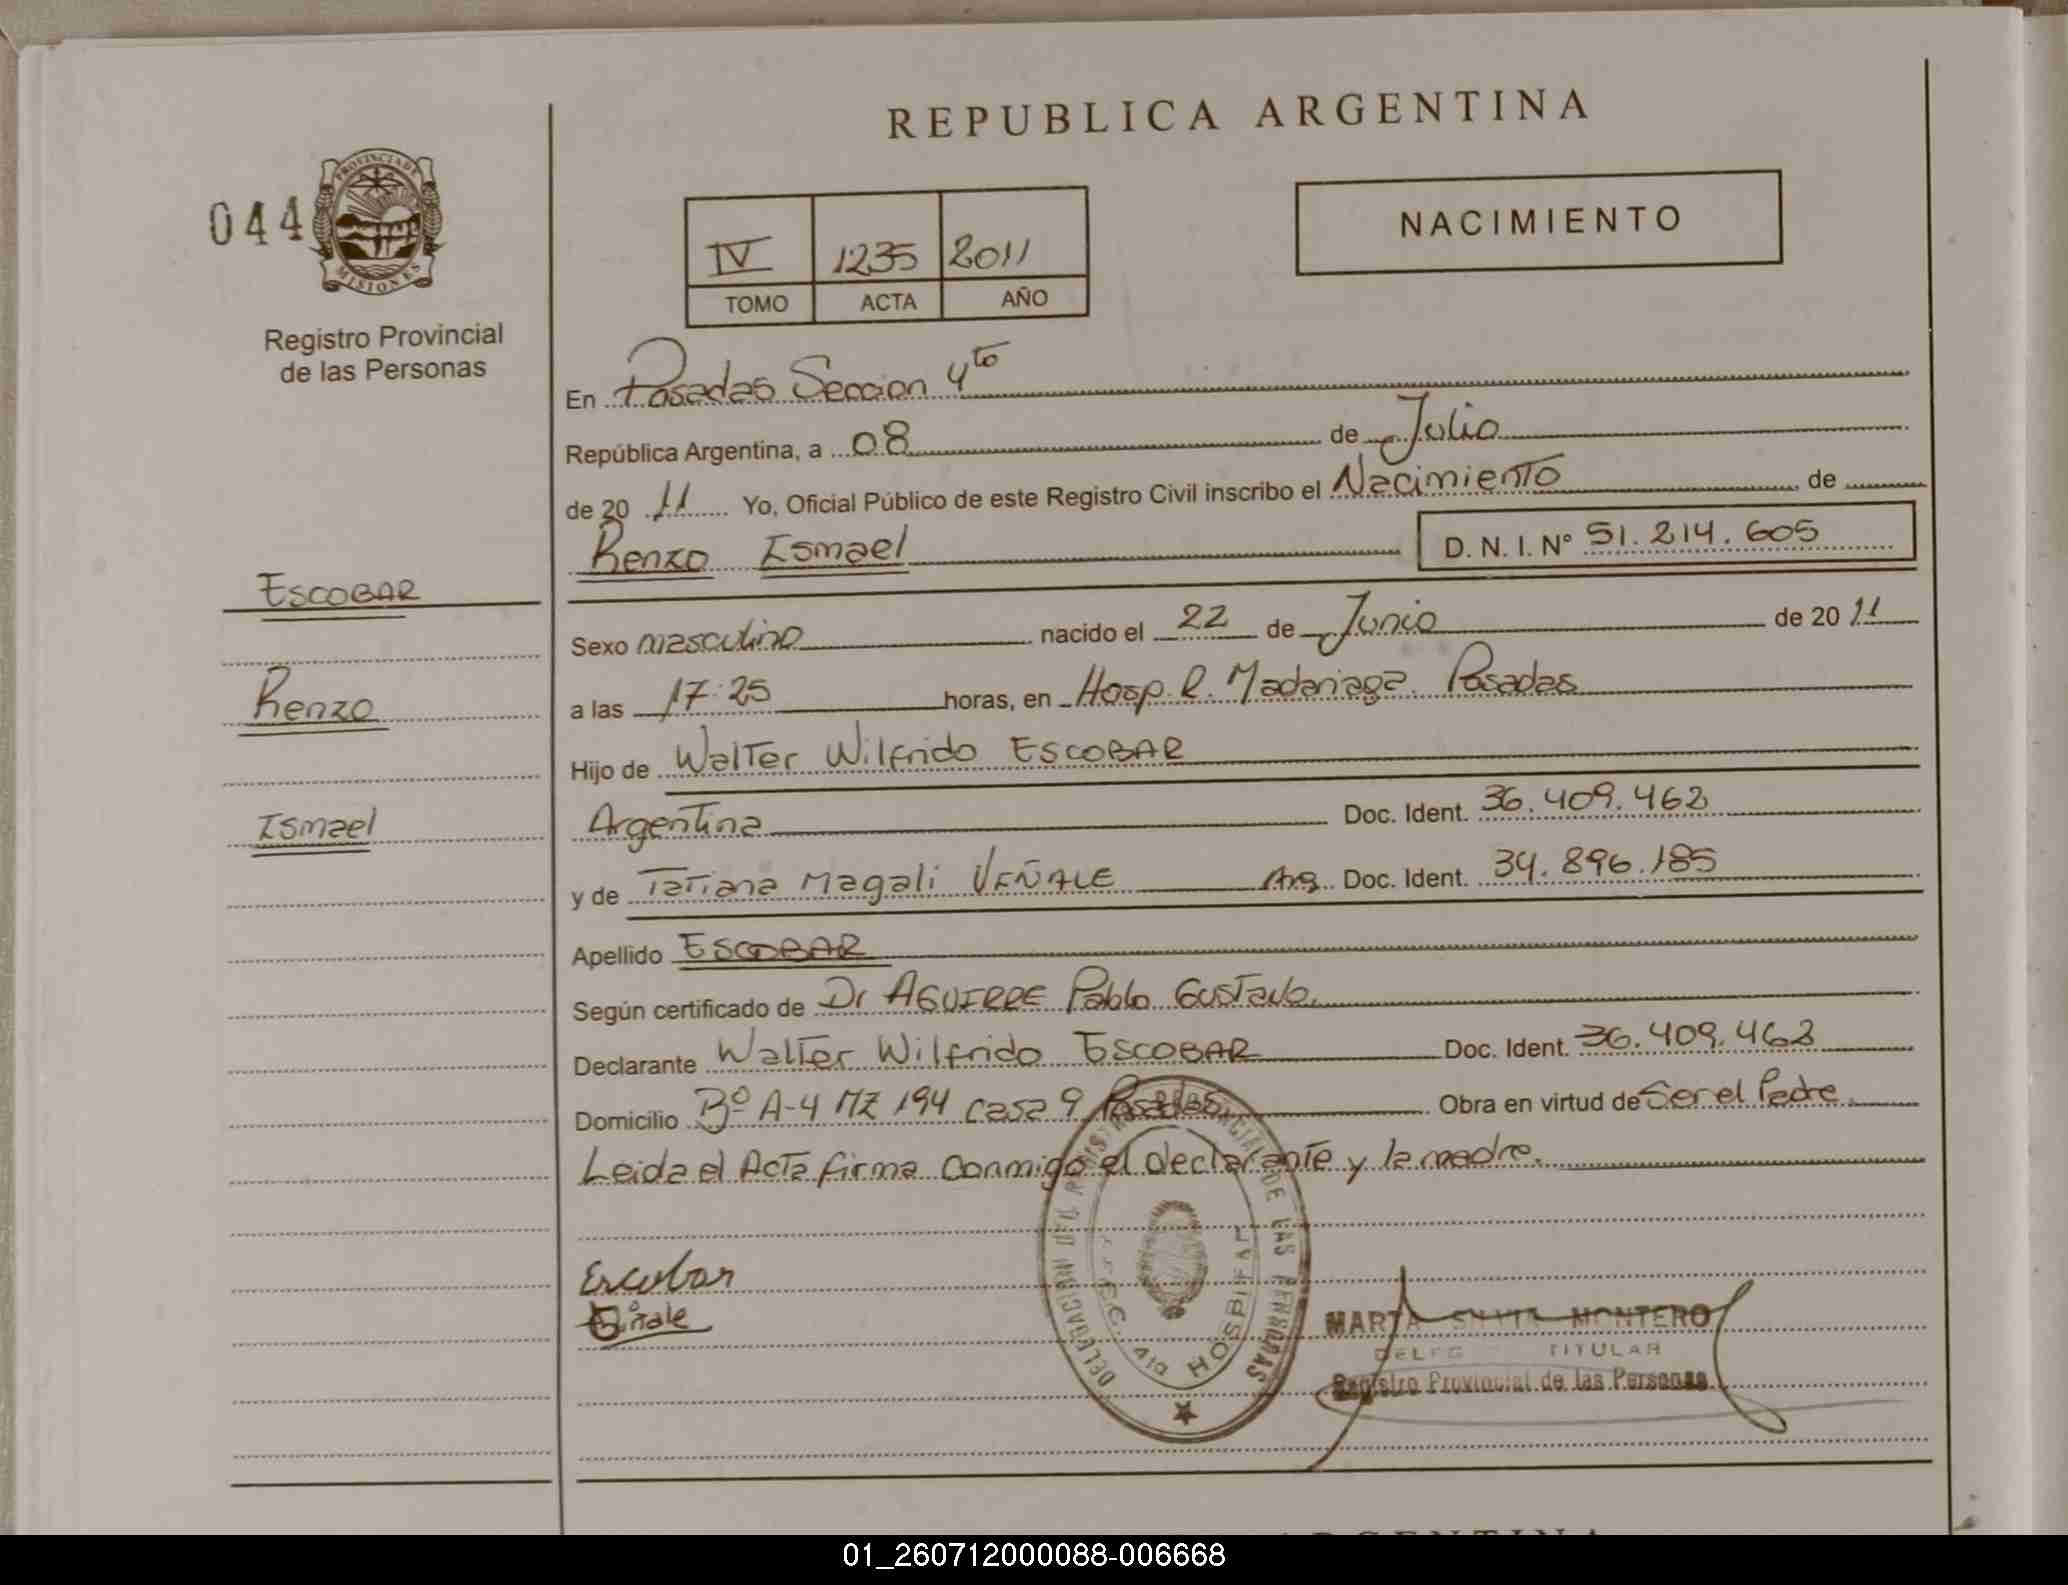 REPUBLICA ARGENTINA
044
PROVINCIA DE
MISIONES
Registro Provincial
de las Personas
IV 1235 2011
TOMO ACTA AÑO
NACIMIENTO
En Posadas Seccion 4to
República Argentina, a 08 de Julio
de 20 11 Yo, Oficial Público de este Registro Civil inscribo el Nacimiento de
Renzo Ismael D. N. I. Nº 51.214.605
ESCOBAR
Renzo
Ismael
Sexo masculino nacido el 22 de Junio de 20 11
a las 17:25 horas, en Hosp. R. Madariaga. Posadas
Hijo de Walter Wilfrido ESCOBAR
Argentina Doc. Ident. 36.409.462
y de Tatiana Magali VIÑALE Arg. Doc. Ident. 34.896.185
Apellido ESCOBAR
Según certificado de Dr AGUIRRE Pablo Gustavo.
Declarante Walter Wilfrido ESCOBAR Doc. Ident. 36.409.462
Domicilio Bº A-4 MZ 194 casa 9 Posadas. Obra en virtud de Ser el Padre.
Leida el Acta firma conmigo el declarante y la madre.
Escobar
DELEGACION DEL REGISTRO PROVINCIAL DE LAS PERSONAS
HOSPITAL
MARTA SILVIA MONTERO
TITULAR
Registro Provincial de las Personas
01_260712000088-006668